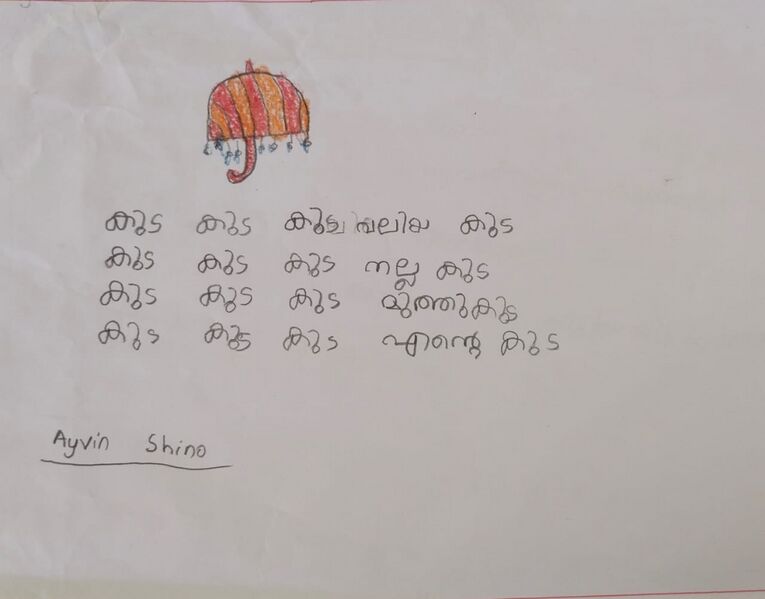 കുട കുട കുട വലിയ കുട
കുട കുട കുട നല്ല കുട
കുട കുട കുട മുത്തുകുട
കുട കുട കുട എന്റെ കുട
Ayvin Shino